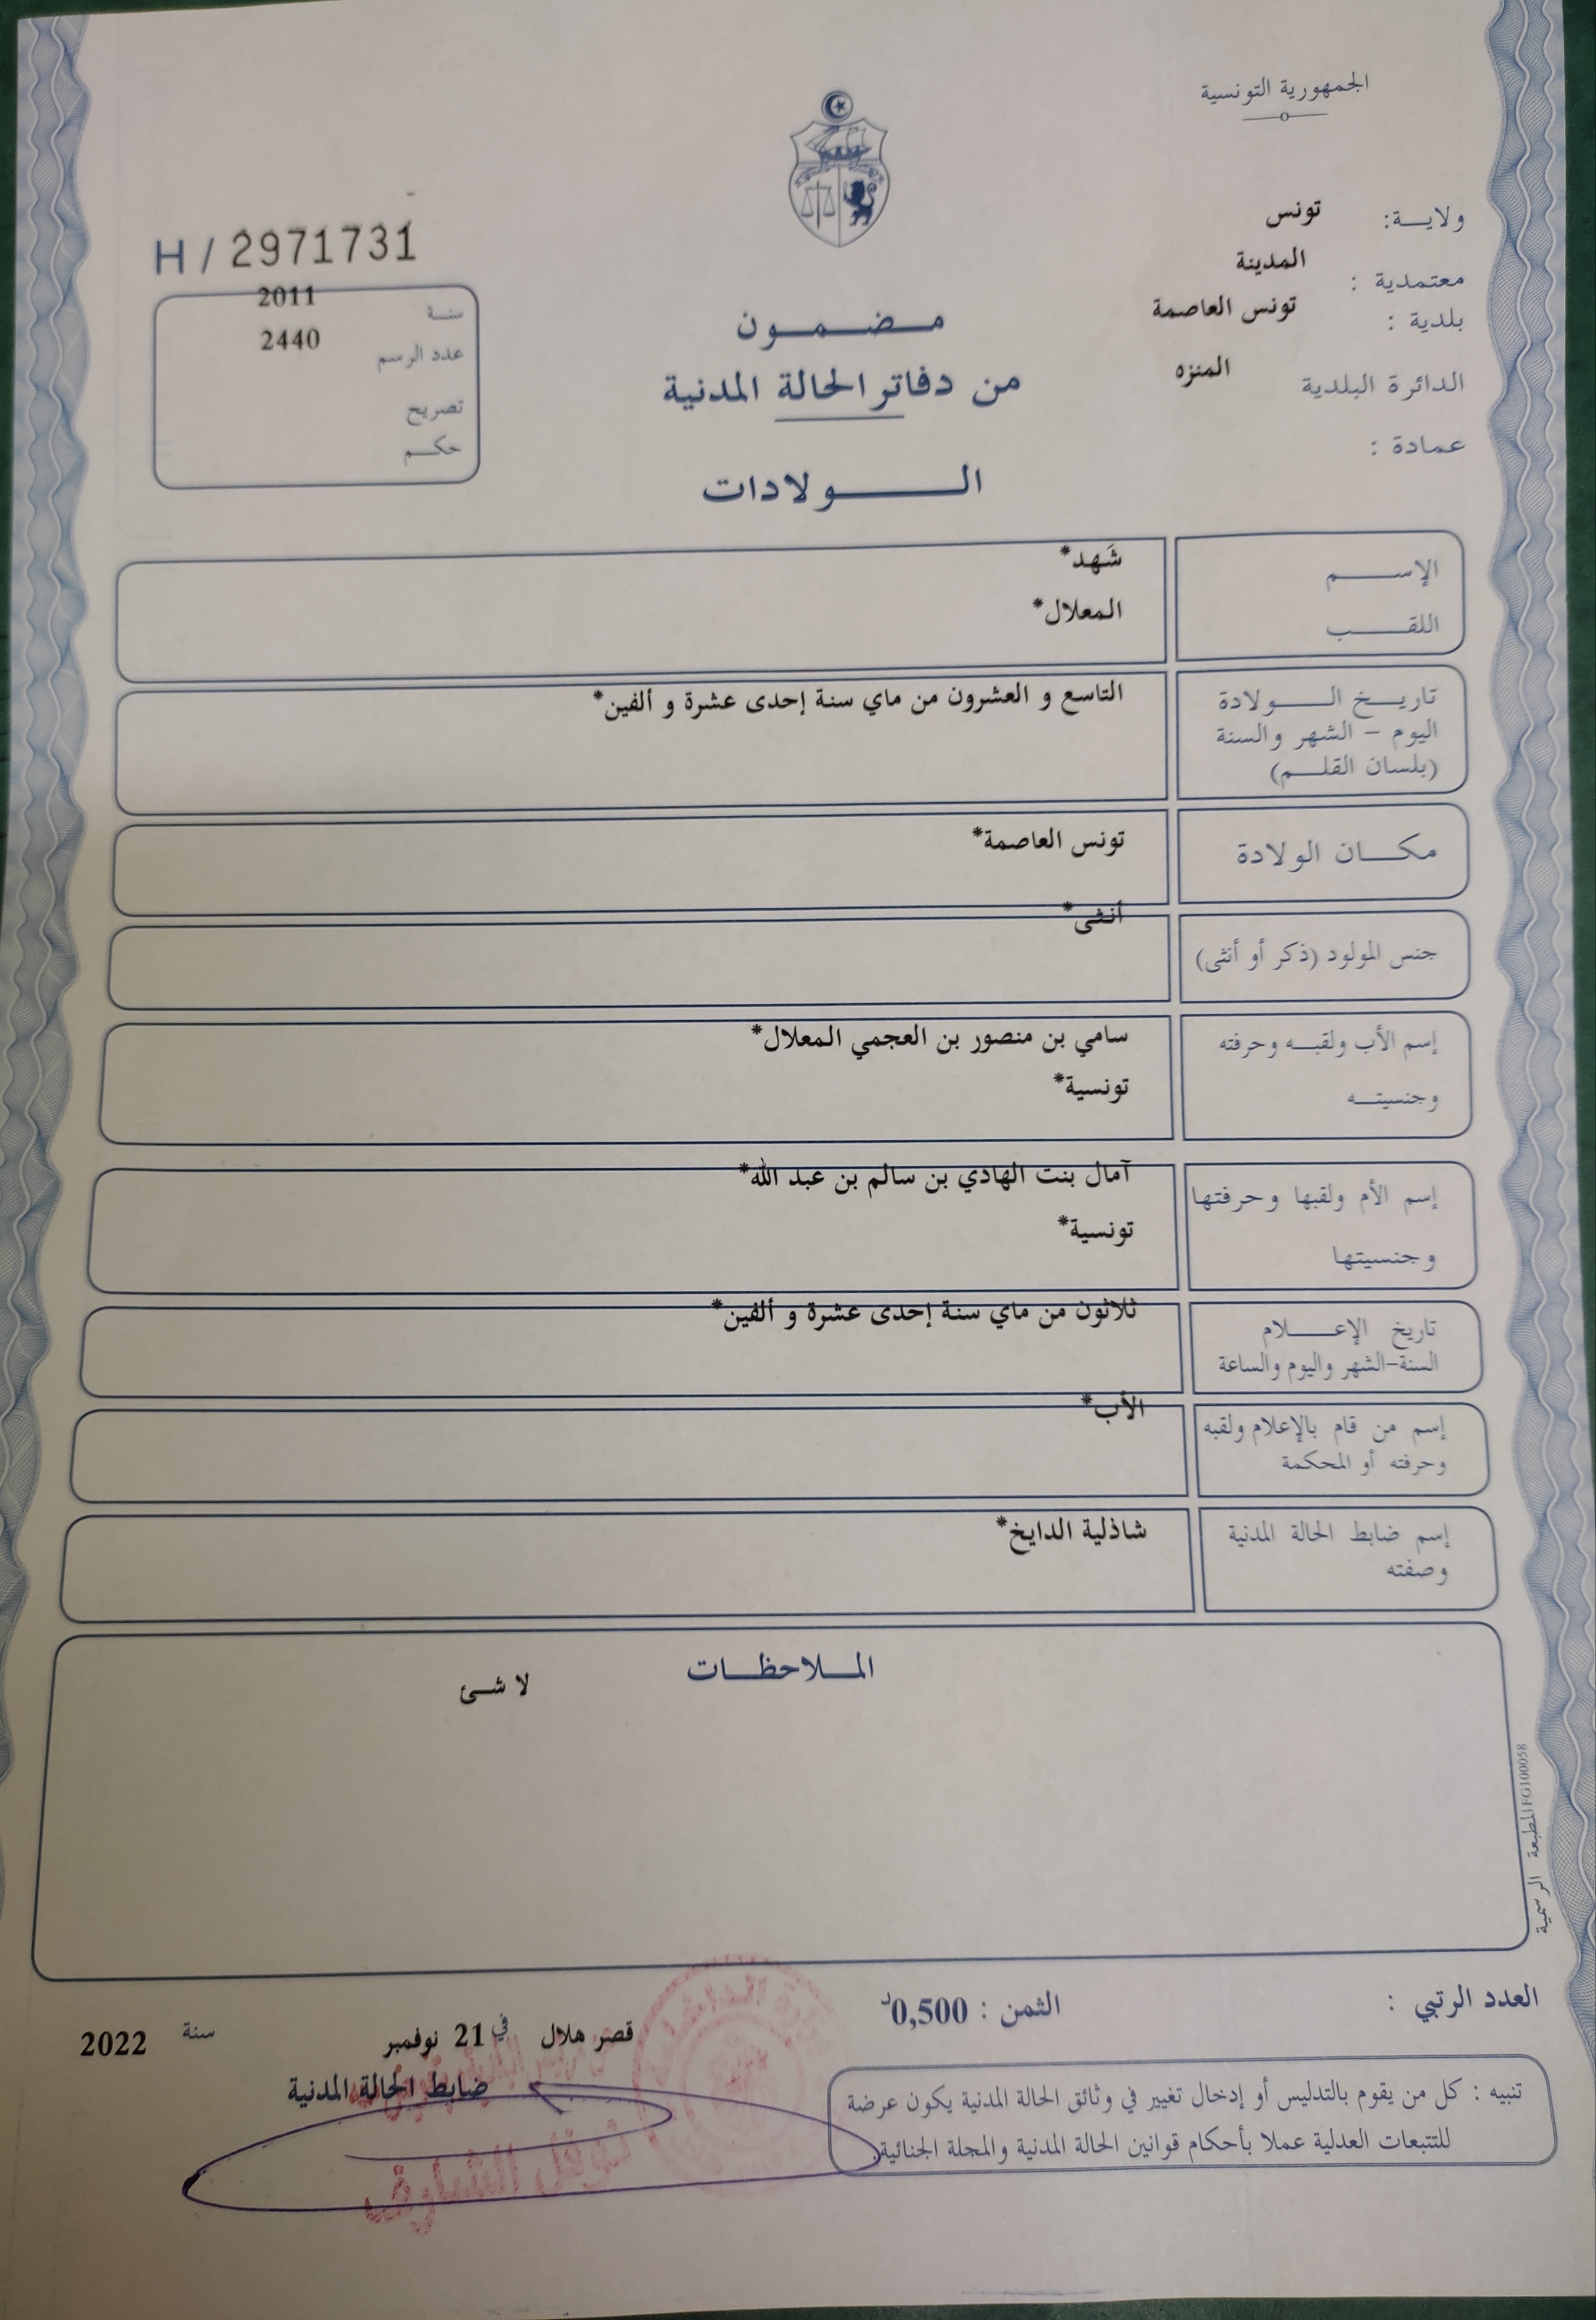 الجمهورية التونسية
ولايـــة: تونس
معتمدية : المدينة
بلدية : تونس العاصمة
الدائرة البلدية المنزه
عمادة :
H / 2971731
سنة 2011
عدد الرسم 2440
تصريح
حكم
مضمون
من دفاتر الحالة المدنية
الولادات
الإسم شَهد*
اللقب المعلال*
تاريخ الولادة التاسع و العشرون من ماي سنة إحدى عشرة و ألفين*
اليوم - الشهر والسنة
(بلسان القلم)
مكان الولادة تونس العاصمة*
جنس المولود (ذكر أو أنثى) أنثى*
إسم الأب ولقبه وحرفته سامي بن منصور بن العجمي المعلال*
وجنسيته تونسية*
إسم الأم ولقبها وحرفتها آمال بنت الهادي بن سالم بن عبد الله*
وجنسيتها تونسية*
تاريخ الإعلام ثلاثون من ماي سنة إحدى عشرة و ألفين*
السنة-الشهر واليوم والساعة
إسم من قام بالإعلام ولقبه الأب*
وحرفته أو المحكمة
إسم ضابط الحالة المدنية شاذلية الدايخ*
وصفته
الملاحظات
لا شئ
المطبعة الرسمية FG100058
العدد الرتبي :
الثمن : 0,500د
قصر هلال في 21 نوفمبر سنة 2022
ضابط الحالة المدنية
نوفل الشارف
تنبيه : كل من يقوم بالتدليس أو إدخال تغيير في وثائق الحالة المدنية يكون عرضة
للتتبعات العدلية عملا بأحكام قوانين الحالة المدنية والمجلة الجنائية.